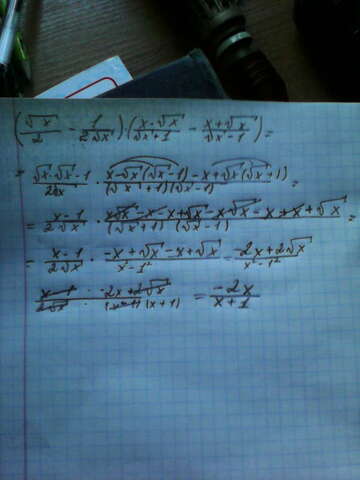 (√x/2 - 1/2√x)·(x-√x/√x+1 - x+√x/√x-1) =
= √x·√x-1/2√x · x-√x(√x-1)-x+√x(√x+1)/(√x+1)(√x-1) =
= x-1/2√x · x√x-x-x+√x-x√x-x+x+√x/(√x+1)(√x-1) =
= x-1/2√x · -x+√x-x+√x/x²-1² = -2x+2√x/x²-1²
x-1/2√x · -2x+2√x/(x-1)(x+1) = -2x/x+1